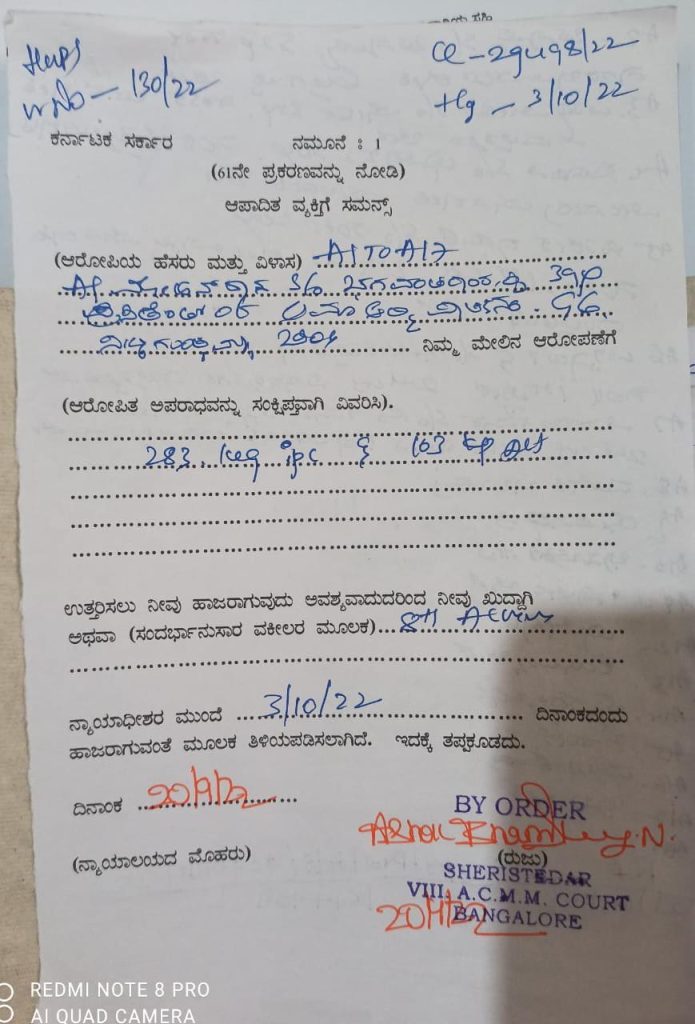 HMPS
CC - 29498/22
WNo - 130/22
Hg - 3/10/22
ಕರ್ನಾಟಕ ಸರ್ಕಾರ ನಮೂನೆ : 1
(61ನೇ ಪ್ರಕರಣವನ್ನು ನೋಡಿ)
ಆಪಾದಿತ ವ್ಯಕ್ತಿಗೆ ಸಮನ್ಸ್
(ಆರೋಪಿಯ ಹೆಸರು ಮತ್ತು ವಿಳಾಸ) A1 TO A17
A1 S/o
ನಿಮ್ಮ ಮೇಲಿನ ಆರೋಪಣೆಗೆ
(ಆರೋಪಿತ ಅಪರಾಧವನ್ನು ಸಂಕ್ಷಿಪ್ತವಾಗಿ ವಿವರಿಸಿ).
283, 149 ipc & 103 KP Act
ಉತ್ತರಿಸಲು ನೀವು ಹಾಜರಾಗುವುದು ಅವಶ್ಯವಾದುದರಿಂದ ನೀವು ಖುದ್ದಾಗಿ
ಅಥವಾ (ಸಂದರ್ಭಾನುಸಾರ ವಕೀಲರ ಮೂಲಕ)... 8th ACMM
ನ್ಯಾಯಾಧೀಶರ ಮುಂದೆ ... 3/10/22 ... ದಿನಾಂಕದಂದು
ಹಾಜರಾಗುವಂತೆ ಮೂಲಕ ತಿಳಿಯಪಡಿಸಲಾಗಿದೆ. ಇದಕ್ಕೆ ತಪ್ಪಕೂಡದು.
ದಿನಾಂಕ
BY ORDER
(ನ್ಯಾಯಾಲಯದ ಮೊಹರು) (ರುಜು)
SHERISTEDAR
VIII, A.C.M.M. COURT
BANGALORE
REDMI NOTE 8 PRO
AI QUAD CAMERA